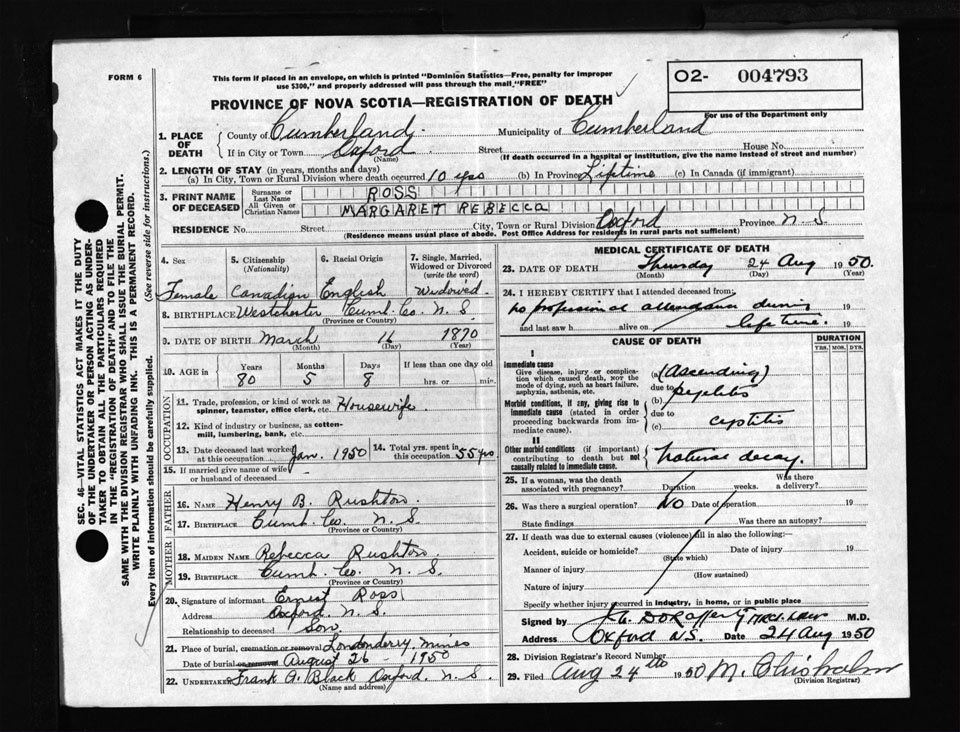 FORM 6
This form if placed in an envelope, on which is printed "Dominion Statistics—Free, penalty for improper
use $300," and properly addressed will pass through the mail "FREE"
PROVINCE OF NOVA SCOTIA—REGISTRATION OF DEATH
O2- 004793
For use of the Department only
1. PLACE OF DEATH
County of Cumberland
Municipality of Cumberland
If in City or Town Oxford (Name) Street House No.
(If death occurred in a hospital or institution, give the name instead of street and number)
2. LENGTH OF STAY (in years, months and days)
(a) In City, Town or Rural Division where death occurred 10 yrs (b) In Province Liftime (c) In Canada (if immigrant)
3. PRINT NAME OF DECEASED
Surname or Last Name ROSS
All Given or Christian Names MARGARET REBECCA
RESIDENCE No. Street City, Town or Rural Division Oxford Province N. S.
(Residence means usual place of abode. Post Office Address for residents in rural parts not sufficient)
4. Sex 5. Citizenship (Nationality) 6. Racial Origin 7. Single, Married, Widowed or Divorced (write the word)
Female Canadian English Widowed
8. BIRTHPLACE Westchester Cumb. Co. N. S.
(Province or Country)
9. DATE OF BIRTH March 16 1870
(Month) (Day) (Year)
10. AGE in Years Months Days If less than one day old
80 5 8 hrs. or min.
OCCUPATION
11. Trade, profession, or kind of work as spinner, teamster, office clerk, etc. Housewife
12. Kind of industry or business, as cotten-mill, lumbering, bank, etc.
13. Date deceased last worked at this occupation Jan. 1950 14. Total yrs. spent in this occupation 55 yrs
15. If married give name of wife or husband of deceased
FATHER
16. NAME Henry B. Rushton
17. BIRTHPLACE Cumb. Co. N. S.
(Province or Country)
MOTHER
18. MAIDEN NAME Rebecca Rushton
19. BIRTHPLACE Cumb. Co. N. S.
(Province or Country)
20. Signature of informant Ernest Ross
Address Oxford N. S.
Relationship to deceased Son
21. Place of burial, cremation or removal Londonderry Mines
Date of burial or removal August 26 - 1950
22. Undertaker Frank A. Black Oxford. N. S.
(Name and address)
MEDICAL CERTIFICATE OF DEATH
23. DATE OF DEATH Thursday 24 Aug 1950.
(Month) (Day) (Year)
24. I HEREBY CERTIFY that I attended deceased from:
no professional attendance during 19
and last saw h alive on lifetime. 19
CAUSE OF DEATH
DURATION
YRS. MOS. DYS.
I
Immediate cause
Give disease, injury or complication which caused death, NOT the mode of dying, such as heart failure, asphyxia, asthenia, etc.
(a) (Ascending)
due to
Morbid conditions, if any, giving rise to immediate cause (stated in order proceeding backwards from immediate cause).
(b) pyelitis
due to
(c) cystitis
II
Other morbid conditions (if important) contributing to death but not causally related to immediate cause.
Natural decay.
25. If a woman, was the death associated with pregnancy? Duration weeks. Was there a delivery?
26. Was there a surgical operation? NO Date of operation 19
State findings Was there an autopsy?
27. If death was due to external causes (violence) fill in also the following:
Accident, suicide or homicide? (State which) Date of injury 19
Manner of injury (How sustained)
Nature of injury
Specify whether injury occurred in industry, in home, or in public place
Signed by M.D.
Address Oxford N.S. Date 24 Aug 1950
28. Division Registrar's Record Number
29. Filed Aug 24th 1950 M. Chisholm
(Division Registrar)
SEC. 46—VITAL STATISTICS ACT MAKES IT THE DUTY
OF THE UNDERTAKER OR PERSON ACTING AS UNDER-
TAKER TO OBTAIN ALL THE PARTICULARS REQUIRED
IN THE "REGISTRATION OF DEATH" AND TO FILE THE
SAME WITH THE DIVISION REGISTRAR WHO SHALL ISSUE THE BURIAL PERMIT.
WRITE PLAINLY WITH UNFADING INK. THIS IS A PERMANENT RECORD.
Every item of information should be carefully supplied. (See reverse side for instructions.)